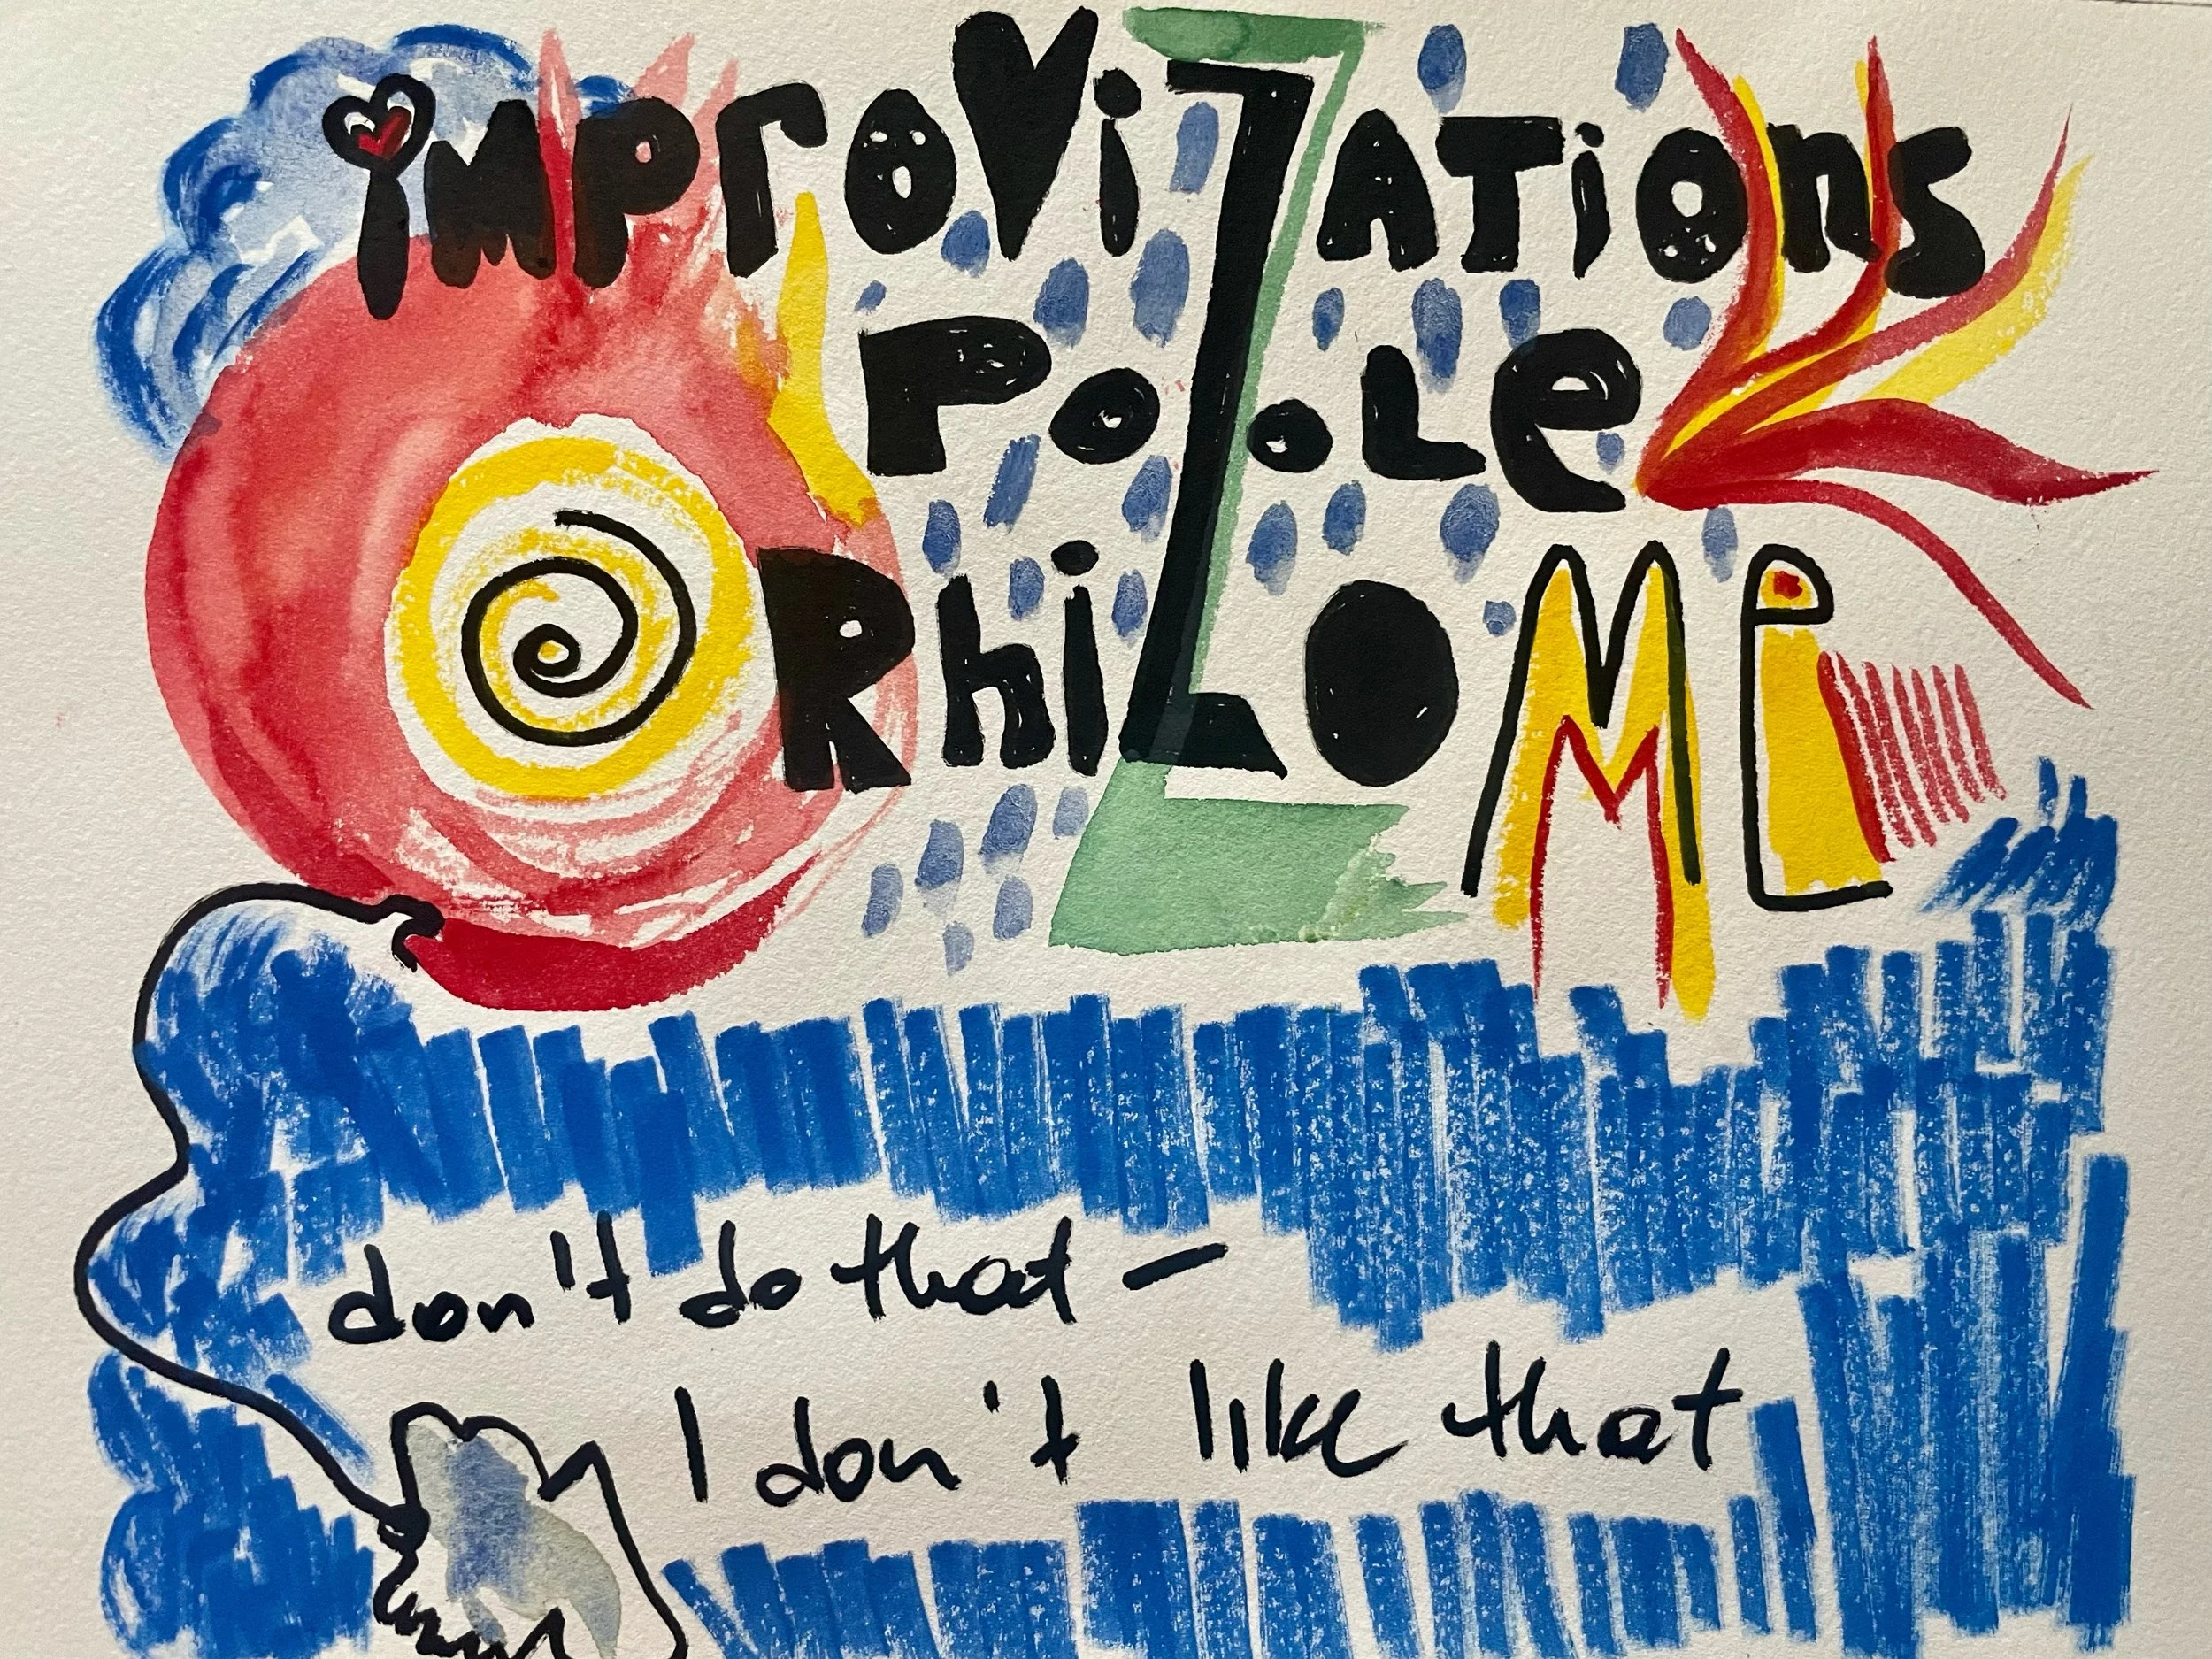 improViZATions
PooLe
RhiZOMe
don't do that –
I don't like that